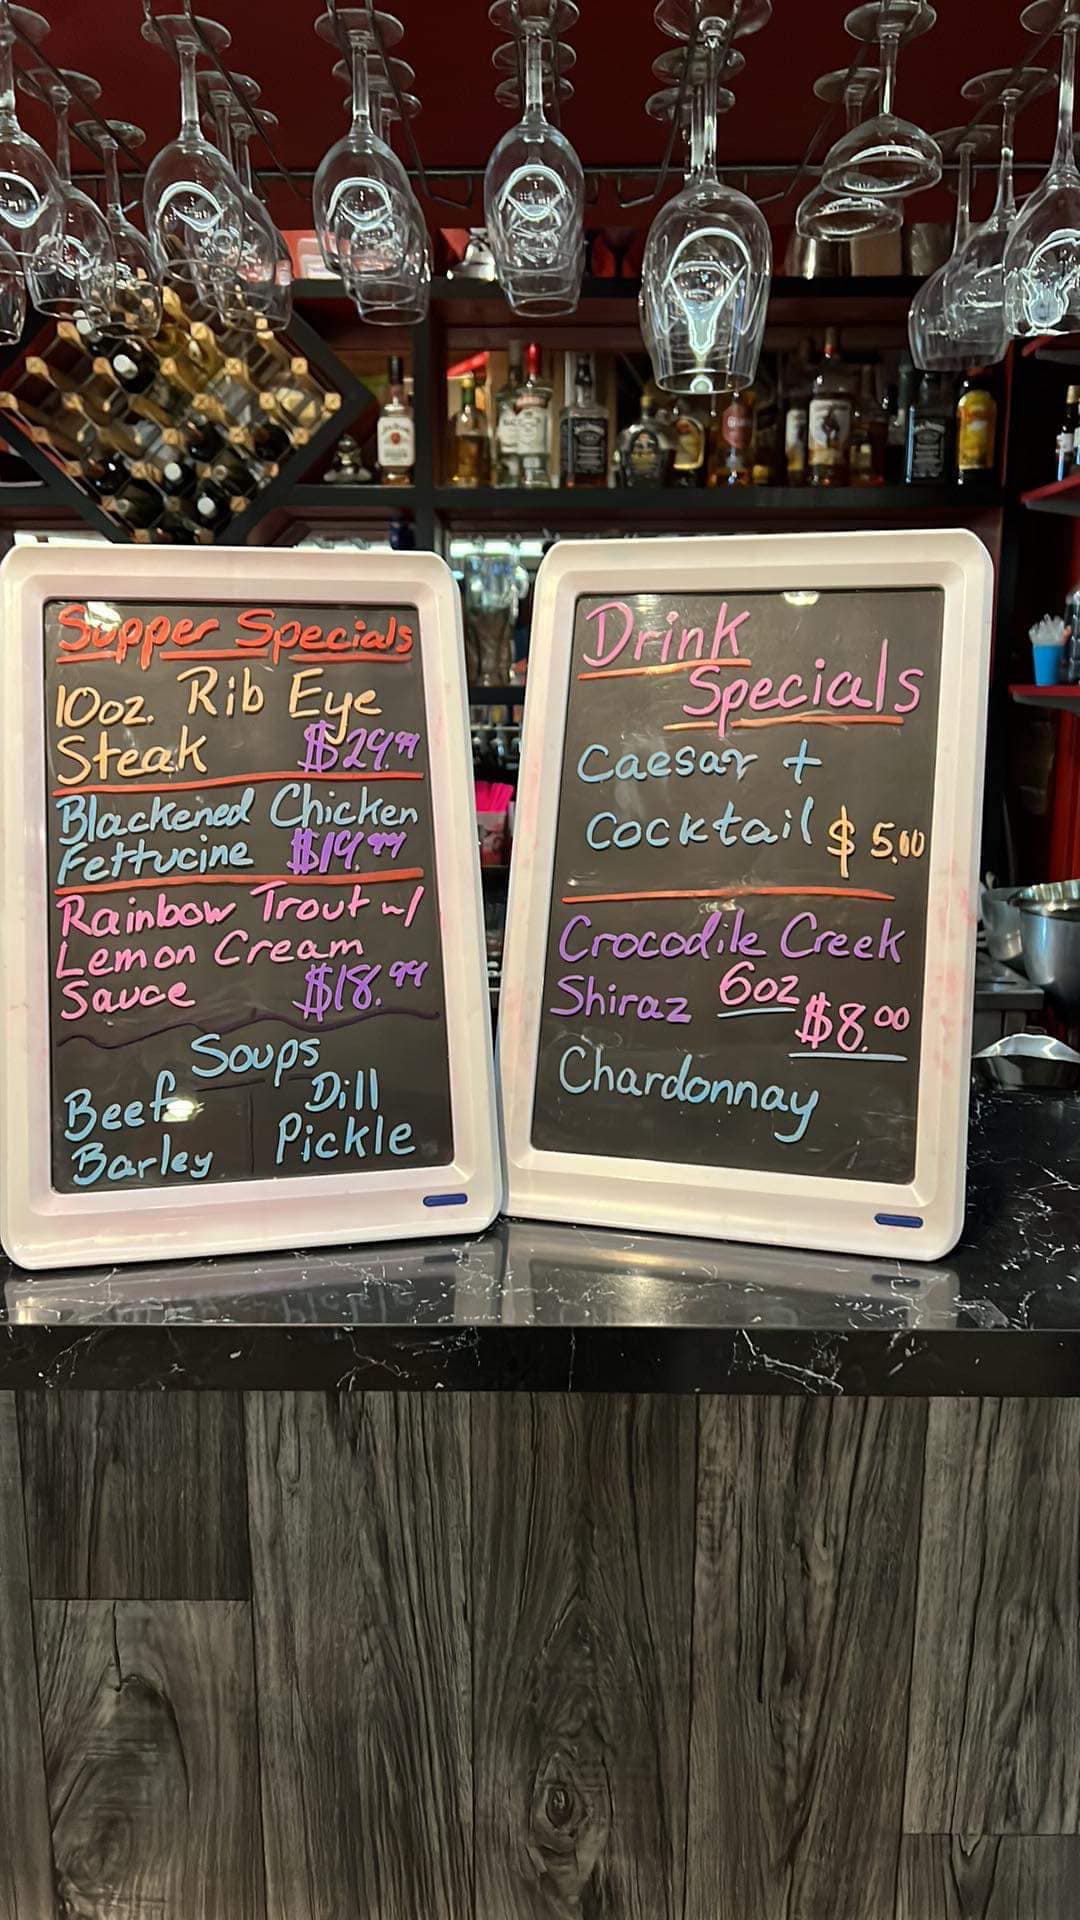 Supper Specials
10oz. Rib Eye
Steak $29.99
Blackened Chicken
Fettucine $19.99
Rainbow Trout w/
Lemon Cream
Sauce $18.99
Soups
Beef Barley
Dill Pickle
Drink
Specials
Caesar +
Cocktail $5.00
Crocodile Creek
Shiraz 6oz $8.00
Chardonnay